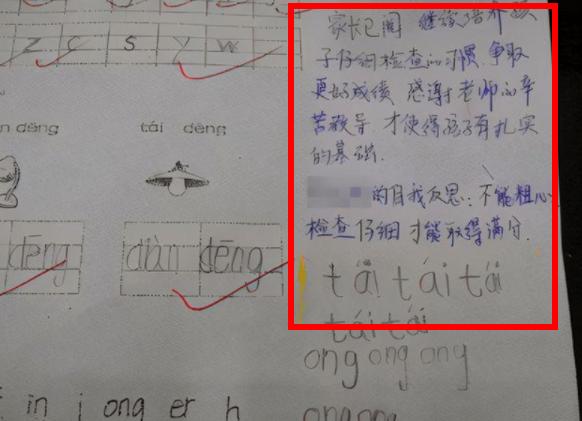 家长已阅 继续培养孩
子仔细检查的习惯,争取
更好成绩 感谢老师的辛
苦教导 才使得孩子有扎实
的基础.
的自我反思:不能粗心
检查仔细才能取得满分.
z c s y w
n dēng
tái dēng
dēng
diàn dēng
tái tái tái
tái tái
ong ong ong
in j ong er h
ong ong